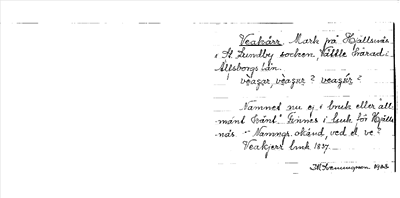 Veakärr. Mark på Hjällsnäs
i St. Lundby socken, Vättle härad i
Älfsborgs län.
vèagar, vèager? veagǘr?
Namnet nu ej i bruk eller all-
mänt känt. Finnes i bruk för Hjälls-
näs "Namngr. okänd, ved el. ve?
Veakjerr bruk 1827.